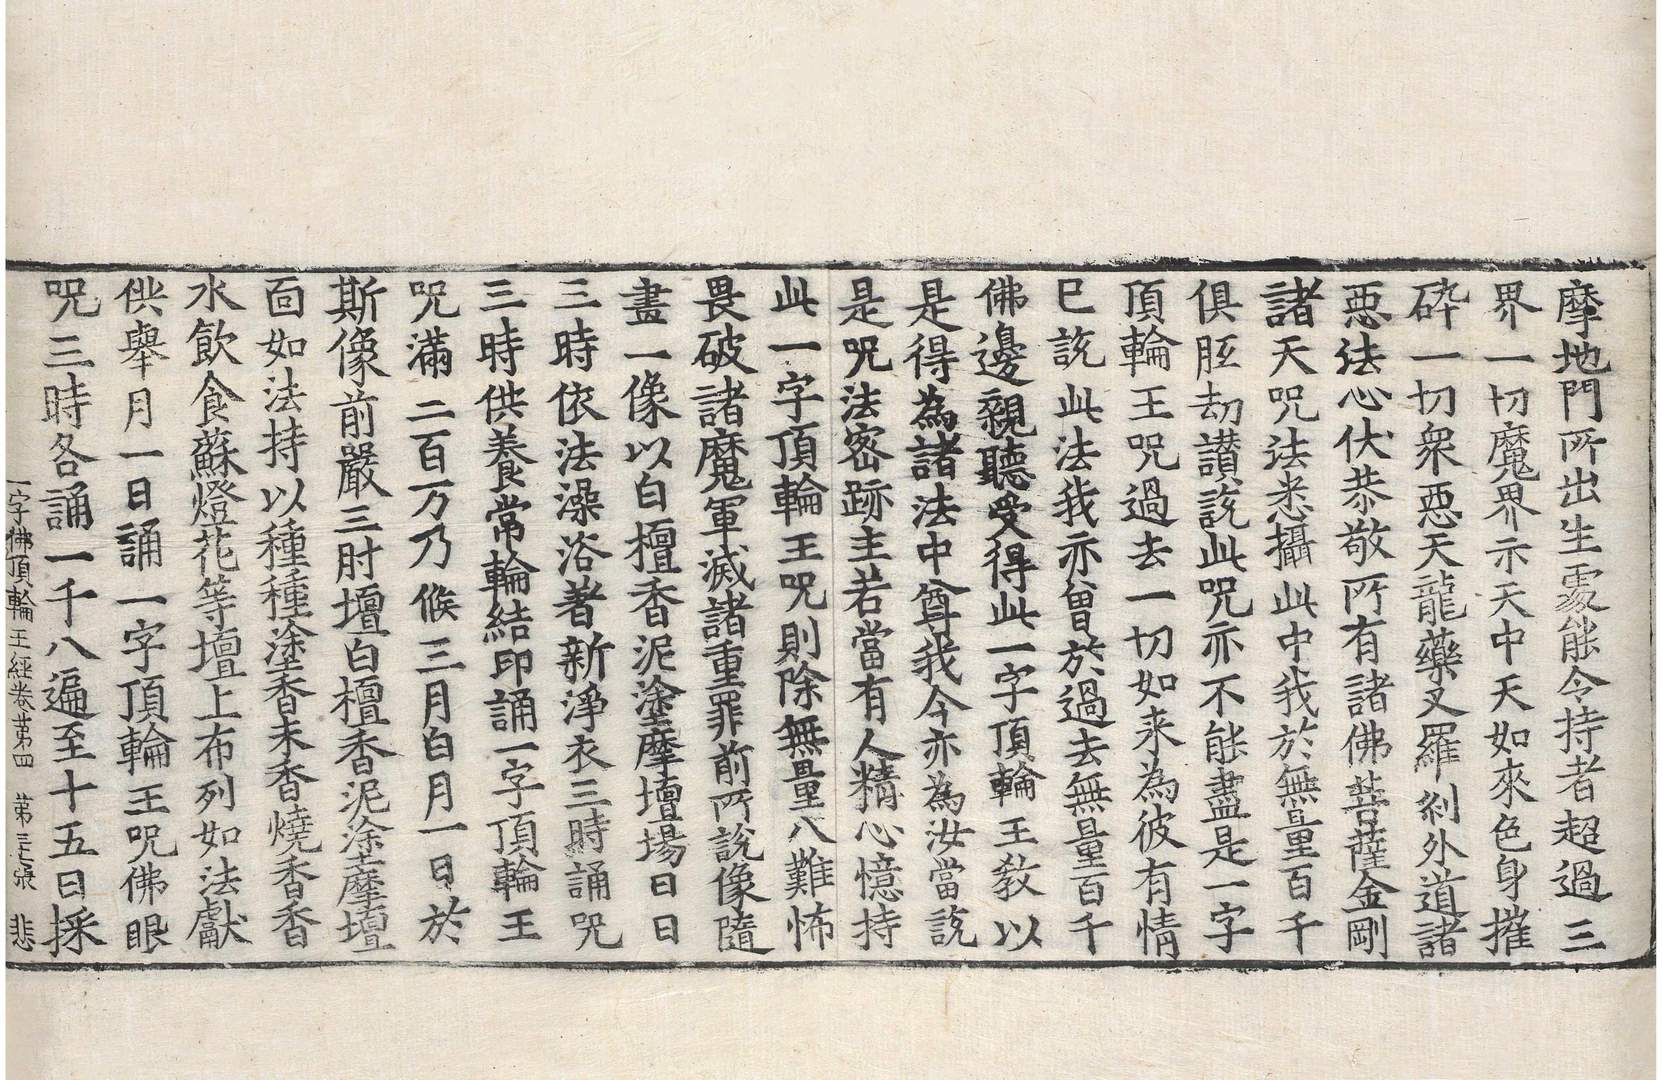 摩地門所出生處能令持者超過三
界一切魔界示天中天如來色身摧
碎一切衆惡天龍藥叉羅刹外道諸
惡法心伏恭敬所有諸佛菩薩金剛
諸天呪法悉攝此中我於無量百千
俱胝劫讃說此呪亦不能盡是一字
頂輪王呪過去一切如来為彼有情
巳說此法我亦曾於過去無量百千
佛邊親聽受得此一字頂輪王教以
是得為諸法中尊我今亦為汝當說
是呪法密跡主若當有人精心憶持
此一字頂輪王呪則除無量八難怖
畏破諸魔軍滅諸重罪前所說像隨
畫一像以白檀香泥塗摩壇場日日
三時依法澡浴著新淨衣三時誦呪
三時供養常輪結印誦一字頂輪王
呪滿二百万乃候三月白月一日於
斯像前嚴三肘壇白檀香泥塗摩壇
面如法持以種種塗香末香燒香香
水飲食蘇燈花等壇上布列如法獻
供舉月一日誦一字頂輪王呪佛眼
呪三時各誦一千八遍至十五日採
一字佛頂輪王經卷第四　第三張　悲